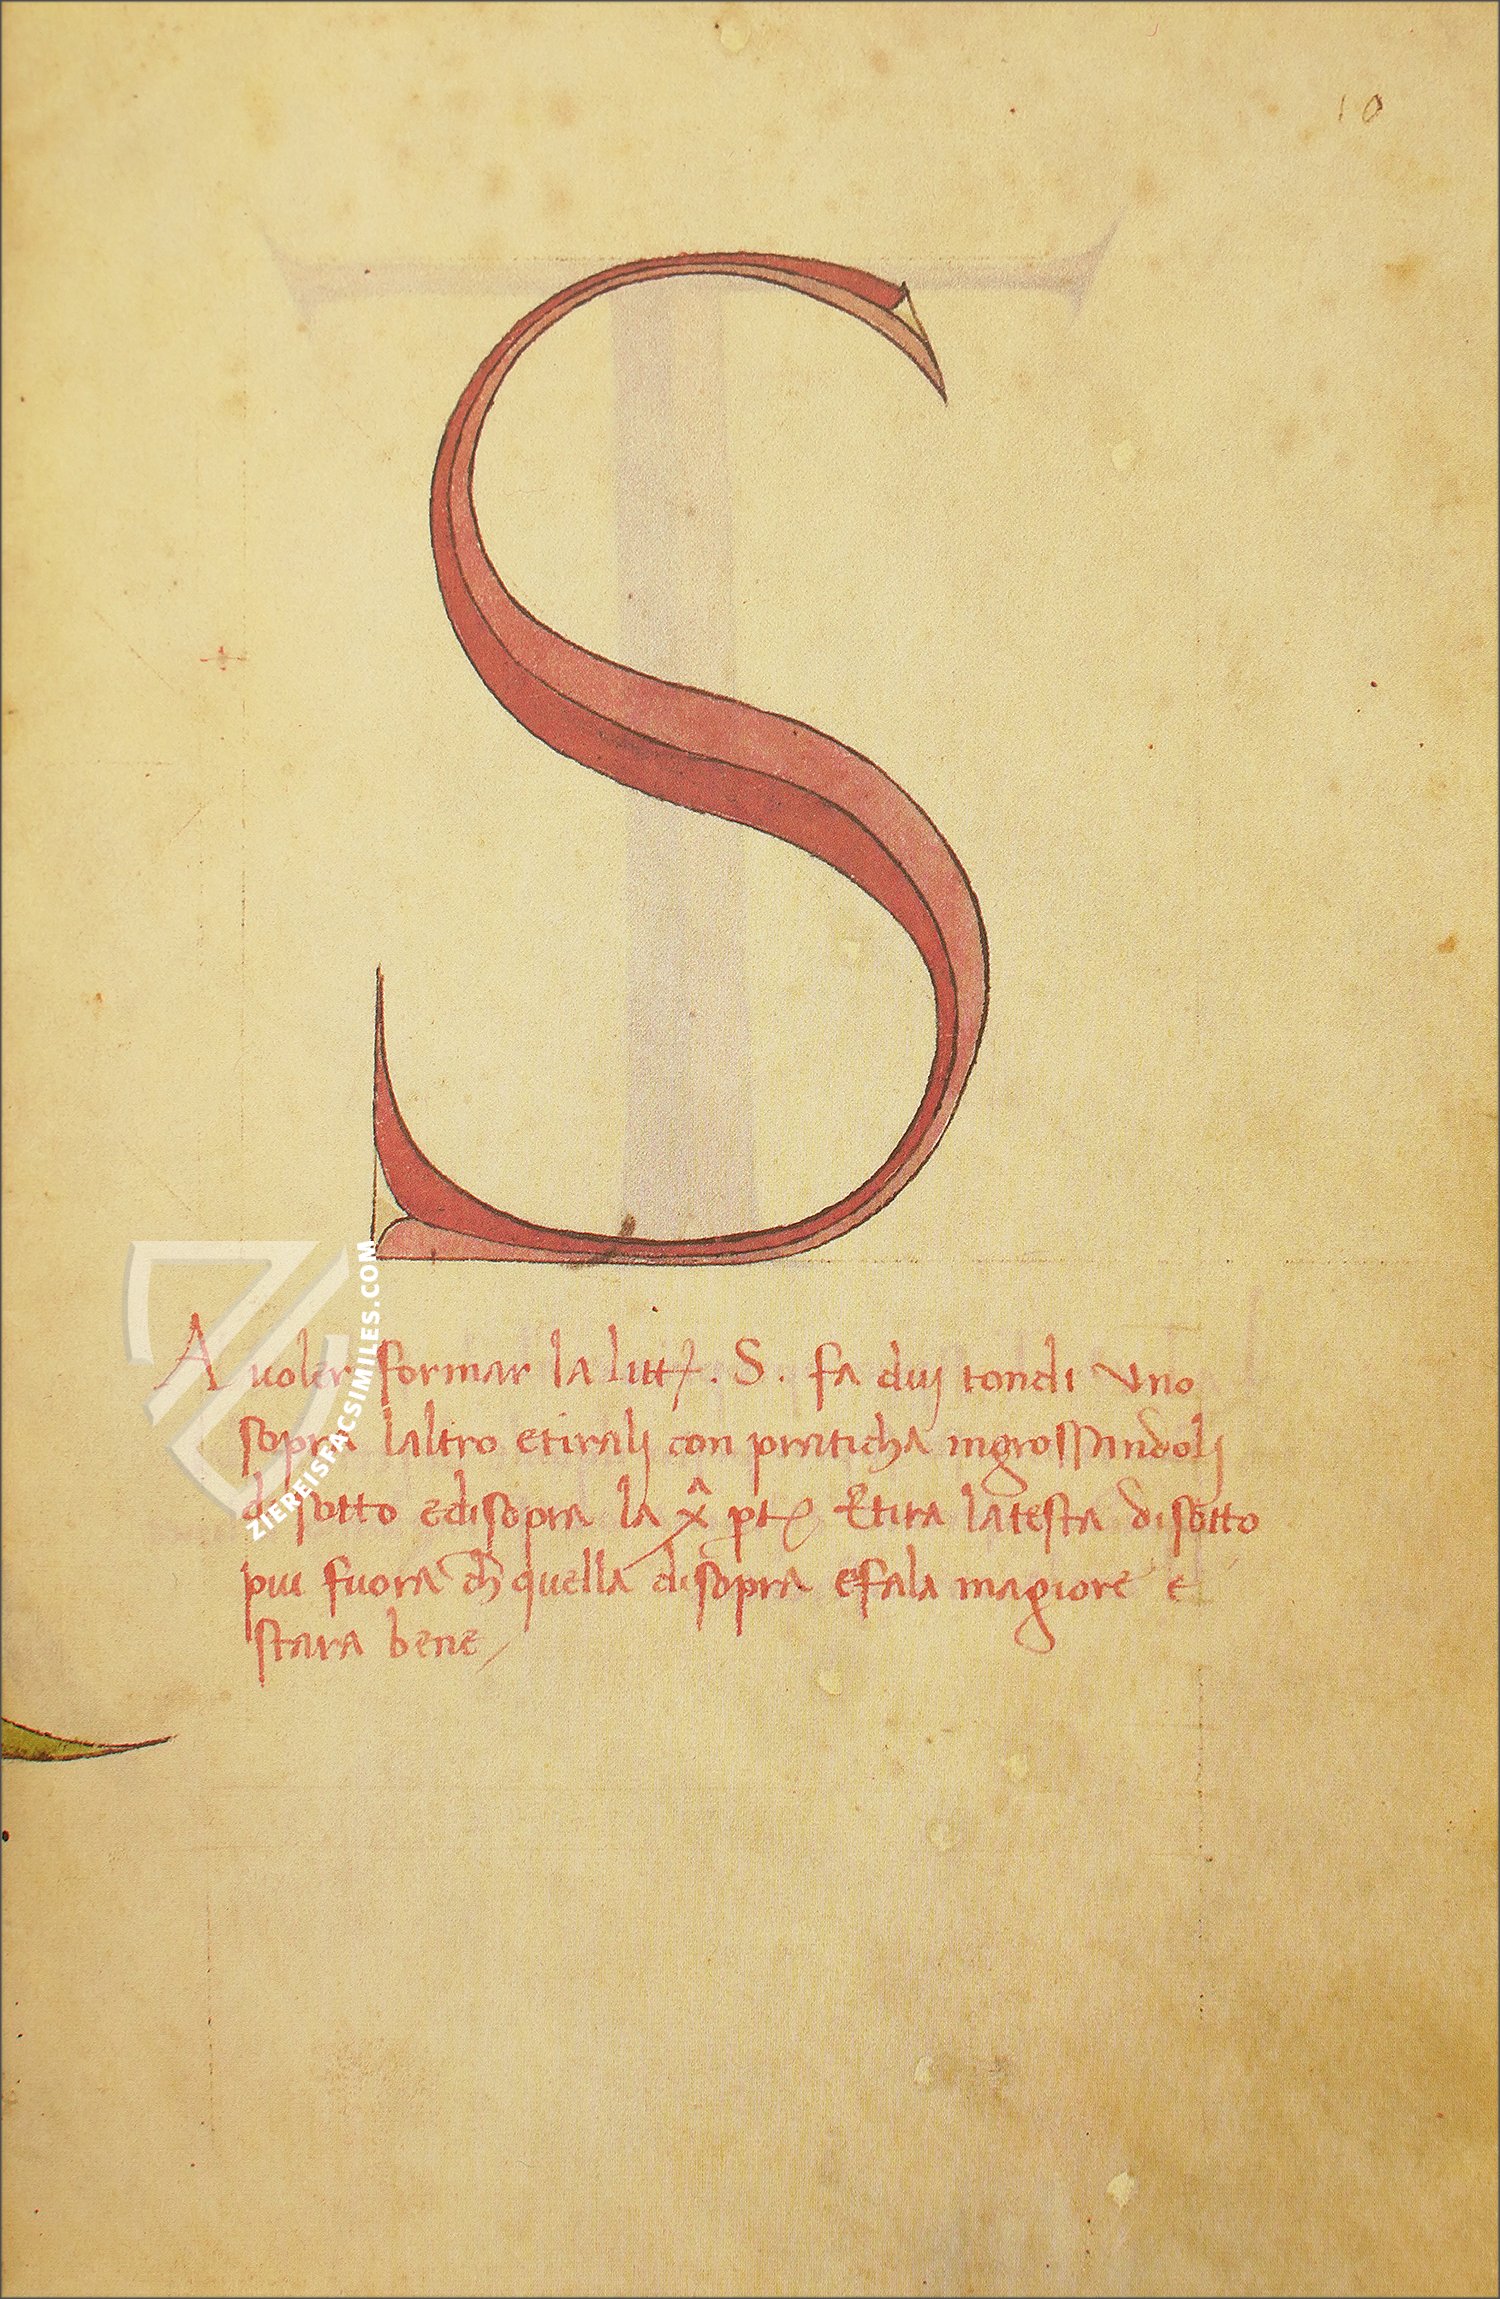 10
S
A uoler formar la litt͛. S. fa duj tondi vno
sopra laltro e tiralj con praticha ingrossandolj
di sotto e di sopra la x̂ pt Et tira la testa di sotto
piu fuora ch̄ quella di sopra e fala magiore e
stara bene
ZIEREISFACSIMILES.COM